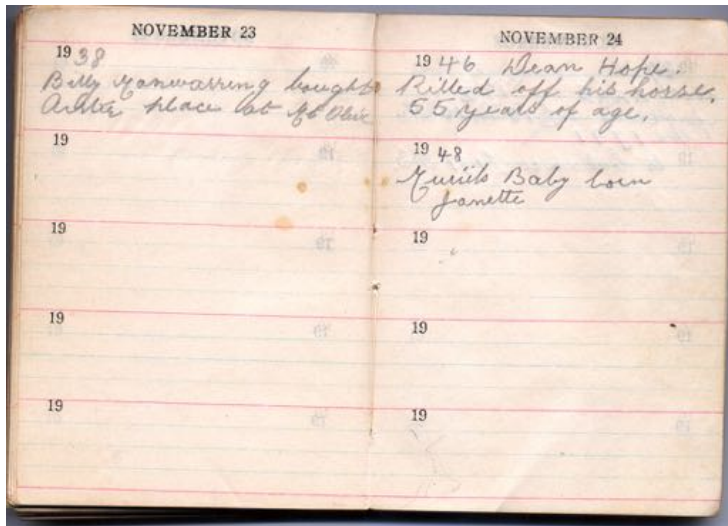 NOVEMBER 23
1938
Billy Manwarring bought
place at Mt Olive
19
19
19
19
NOVEMBER 24
1946 Dean Hope.
Killed off his horse.
55 years of age.
1948
Baby born
Janette
19
19
19